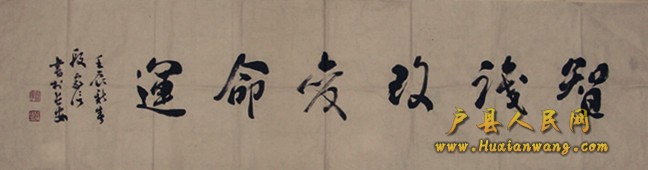 智識改变命運
壬辰秋
書於长安
户县人民网
www.Huxianwang.com